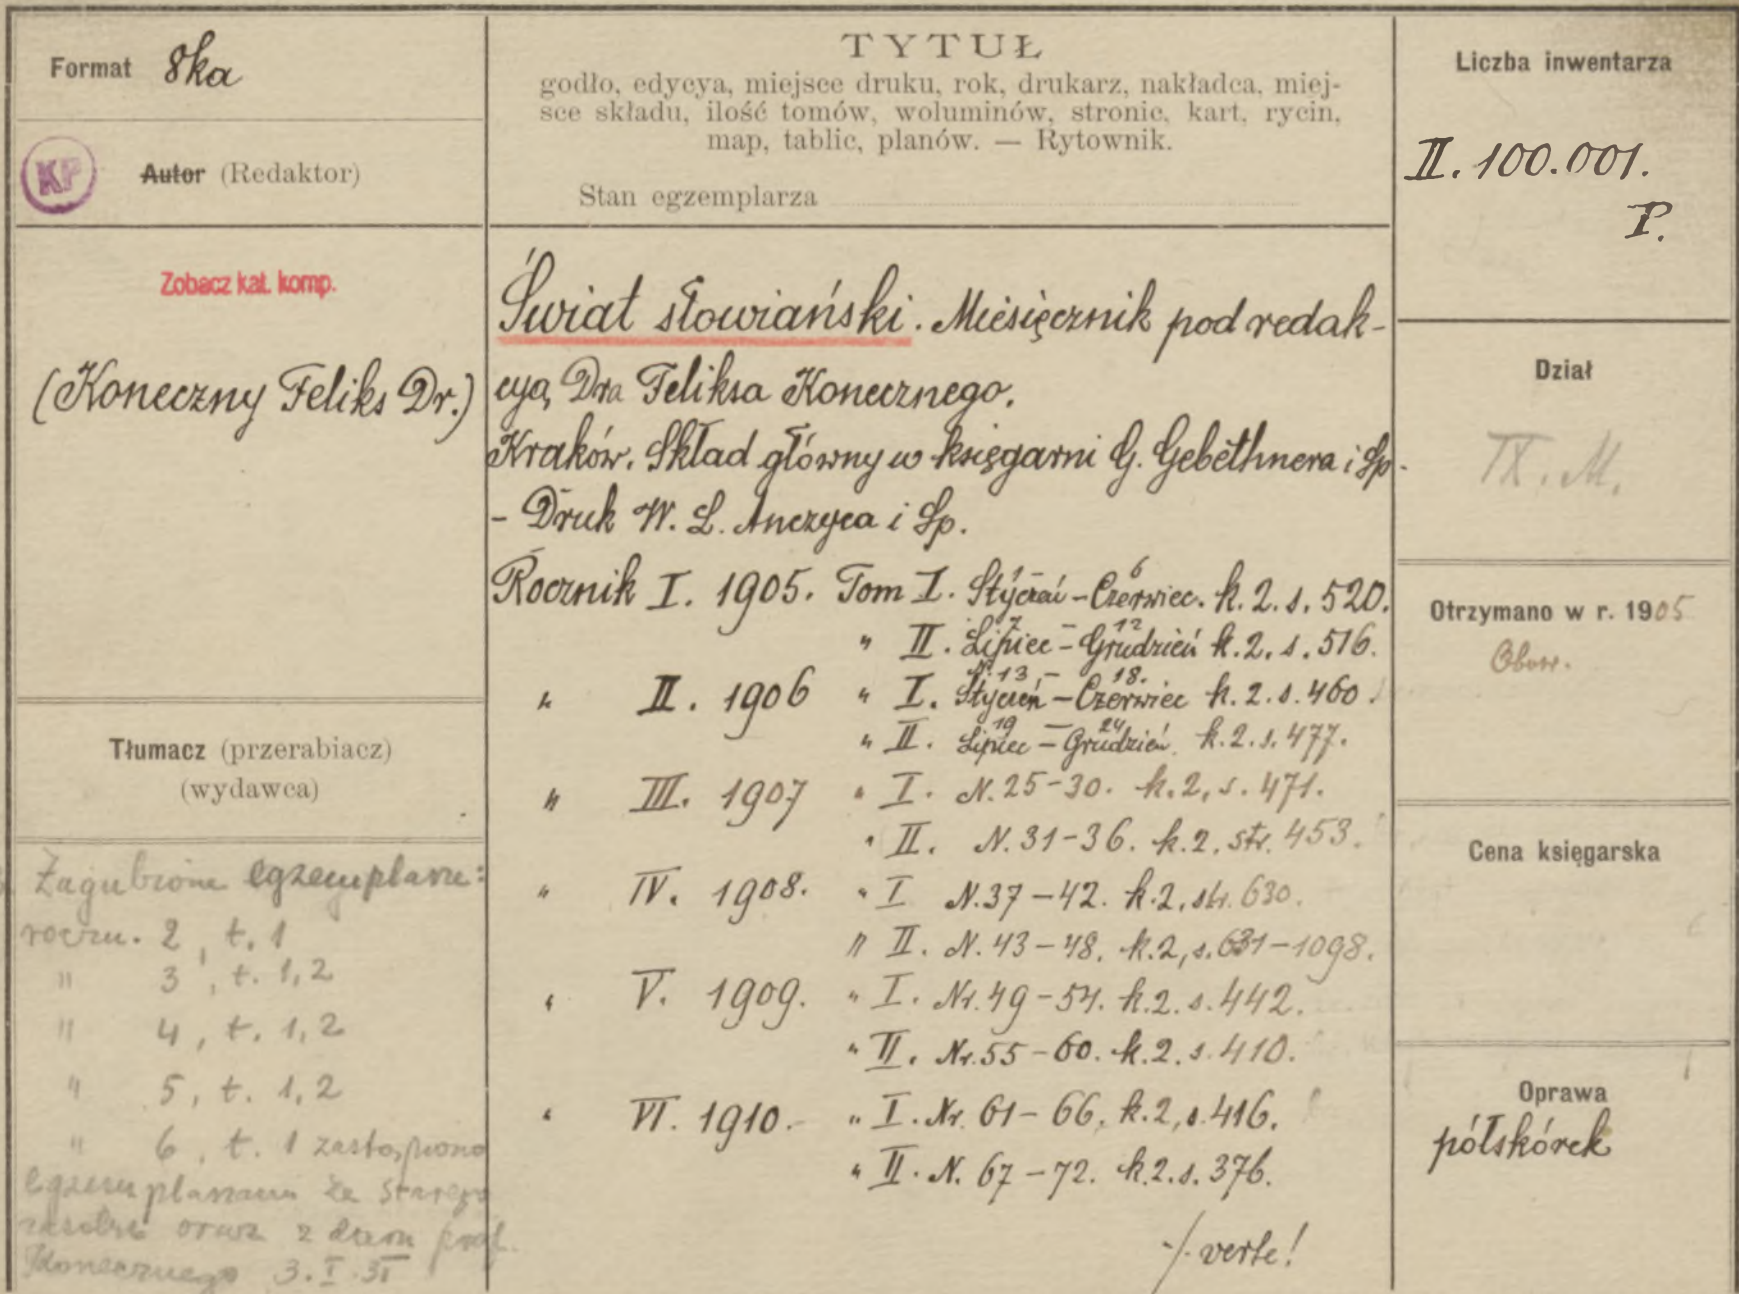 Format 8ka
KP
Autor (Redaktor)
Zobacz kat. komp.
(Koneczny Feliks Dr.)
Tłumacz (przerabiacz)
(wydawca)
Zagubione egzemplarze:
roczn. 2, t. 1
" 3, t. 1,2
" 4, t. 1,2
" 5, t. 1,2
" 6, t. 1 zastąpiono
egzemplarzami ze starego
zasobu oraz z daru prof.
Konecznego 3.I.31
TYTUŁ
godło, edycya, miejsce druku, rok, drukarz, nakładca, miej-
sce składu, ilość tomów, woluminów, stronic, kart, rycin,
map, tablic, planów. — Rytownik.
Stan egzemplarza
Świat słowiański. Miesięcznik pod redak-
cyą Dra Feliksa Konecznego.
Kraków. Skład główny w księgarni G. Gebethnera i Sp.
- Druk W. L. Anczyca i Sp.
Rocznik I. 1905. Tom I. Styczeń - Czerwiec. k. 2. s. 520.
1 - 6
" II. Lipiec - Grudzień k. 2. s. 516.
7 - 12
" II. 1906 " I. Styczeń - Czerwiec k. 2. s. 460.
N. 13, - 18.
" II. Lipiec - Grudzień k. 2. s. 477.
19 - 24
" III. 1907 " I. N. 25-30. k. 2, s. 471.
" II. N. 31-36. k. 2. str. 453.
" IV. 1908. " I N. 37-42. k. 2, str. 630.
" II. N. 43-48. k. 2, s. 631-1098.
" V. 1909. " I. Nr. 49-54. k. 2. s. 442.
" II. Nr. 55-60. k. 2. s. 410.
" VI. 1910. " I. Nr. 61-66. k. 2, s. 416.
" II. N. 67-72. k. 2. s. 376.
-/. verte!
Liczba inwentarza
II. 100.001.
P.
Dział
IX. M.
Otrzymano w r. 1905
Obow.
Cena księgarska
Oprawa
półskórek